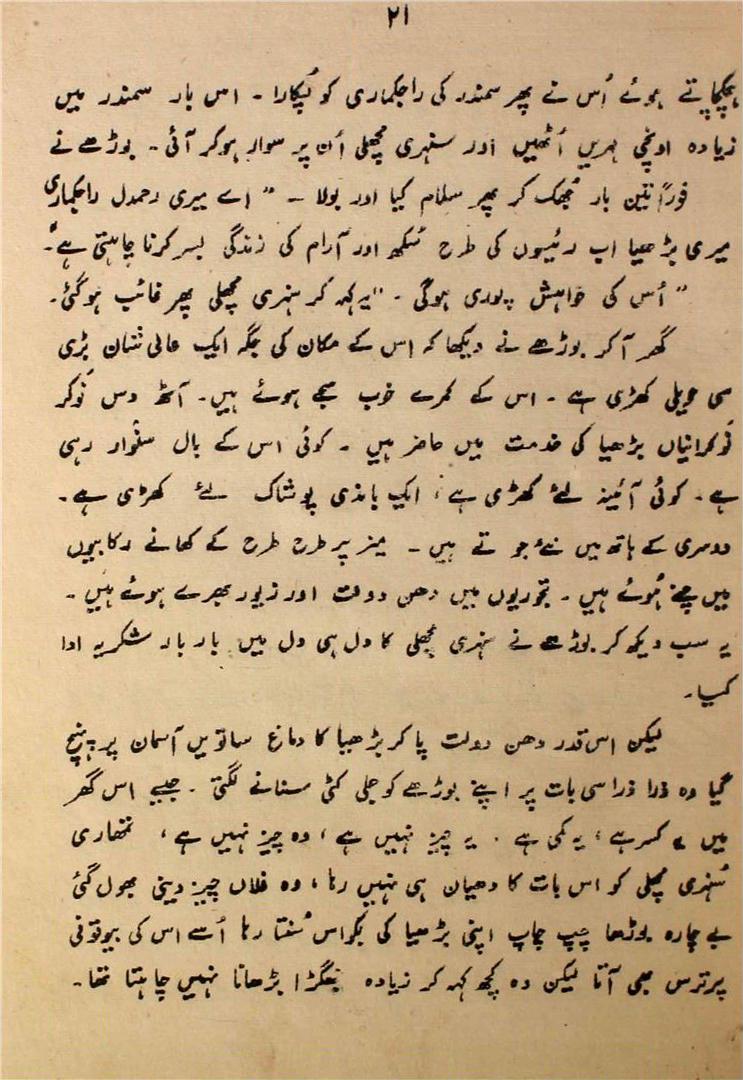 ۲۱
ہچکچاتے ہوئے اُس نے پھر سمندر کی راجکماری کو پُکارا ۔ اس بار سمندر میں
زیادہ اونچی لہریں اُٹھیں اور سنہری مچھلی اُن پر سوار ہوکر آئی ۔ بوڑھے نے
فوراً تین بار جُھک کر پھر سلام کیا اور بولا ۔ " اے میری رحمدل راجکماری
میری بڑھیا اب رئیسوں کی طرح سُکھ اور آرام کی زندگی بسر کرنا چاہتی ہے ۔"
" اُس کی خواہش پوری ہوگی ۔ " یہ کہہ کر سنہری مچھلی پھر غائب ہوگئی ۔
گھر آکر بوڑھے نے دیکھا کہ اس کے مکان کی جگہ ایک عالی شان بڑی
سی حویلی کھڑی ہے ۔ اس کے کمرے خوب سجے ہوئے ہیں ۔ آٹھ دس نوکر
نوکرانیاں بڑھیا کی خدمت میں حاضر ہیں ۔ کوئی اس کے بال سنوار رہی
ہے ۔ کوئی آئینہ لئے کھڑی ہے ، ایک باندی پوشاک لئے کھڑی ہے ۔
دوسری کے ہاتھ میں نئے جوتے ہیں ۔ میز پر طرح طرح کے کھانے رکابیوں
میں چنے ہُوئے ہیں ۔ تجوریوں میں دھن دولت اور زیور بھرے ہوئے ہیں ۔
یہ سب دیکھ کر بوڑھے نے سنہری مچھلی کا دل ہی دل میں بار بار شکریہ ادا
کیا ۔
لیکن اس قدر دھن دولت پا کر بڑھیا کا دماغ ساتویں آسمان پر پہنچ
گیا وہ ذرا ذرا سی بات پر اپنے بوڑھے کو جلی کٹی سنانے لگتی ۔ جیسے اس گھر
میں یہ کسر ہے ، یہ کمی ہے ۔ یہ چیز نہیں ہے ، وہ چیز نہیں ہے ، تمھاری
سُنہری مچھلی کو اس بات کا دھیان ہی نہیں رہا ، وہ فلاں چیز دینی بھول گئی
بے چارہ بوڑھا چپ چاپ اپنی بڑھیا کی بکواس سُنتا رہا اُسے اس کی بیوقوفی
پر ترس بھی آتا لیکن وہ کچھ کہہ کر زیادہ جھگڑا بڑھانا نہیں چاہتا تھا ۔